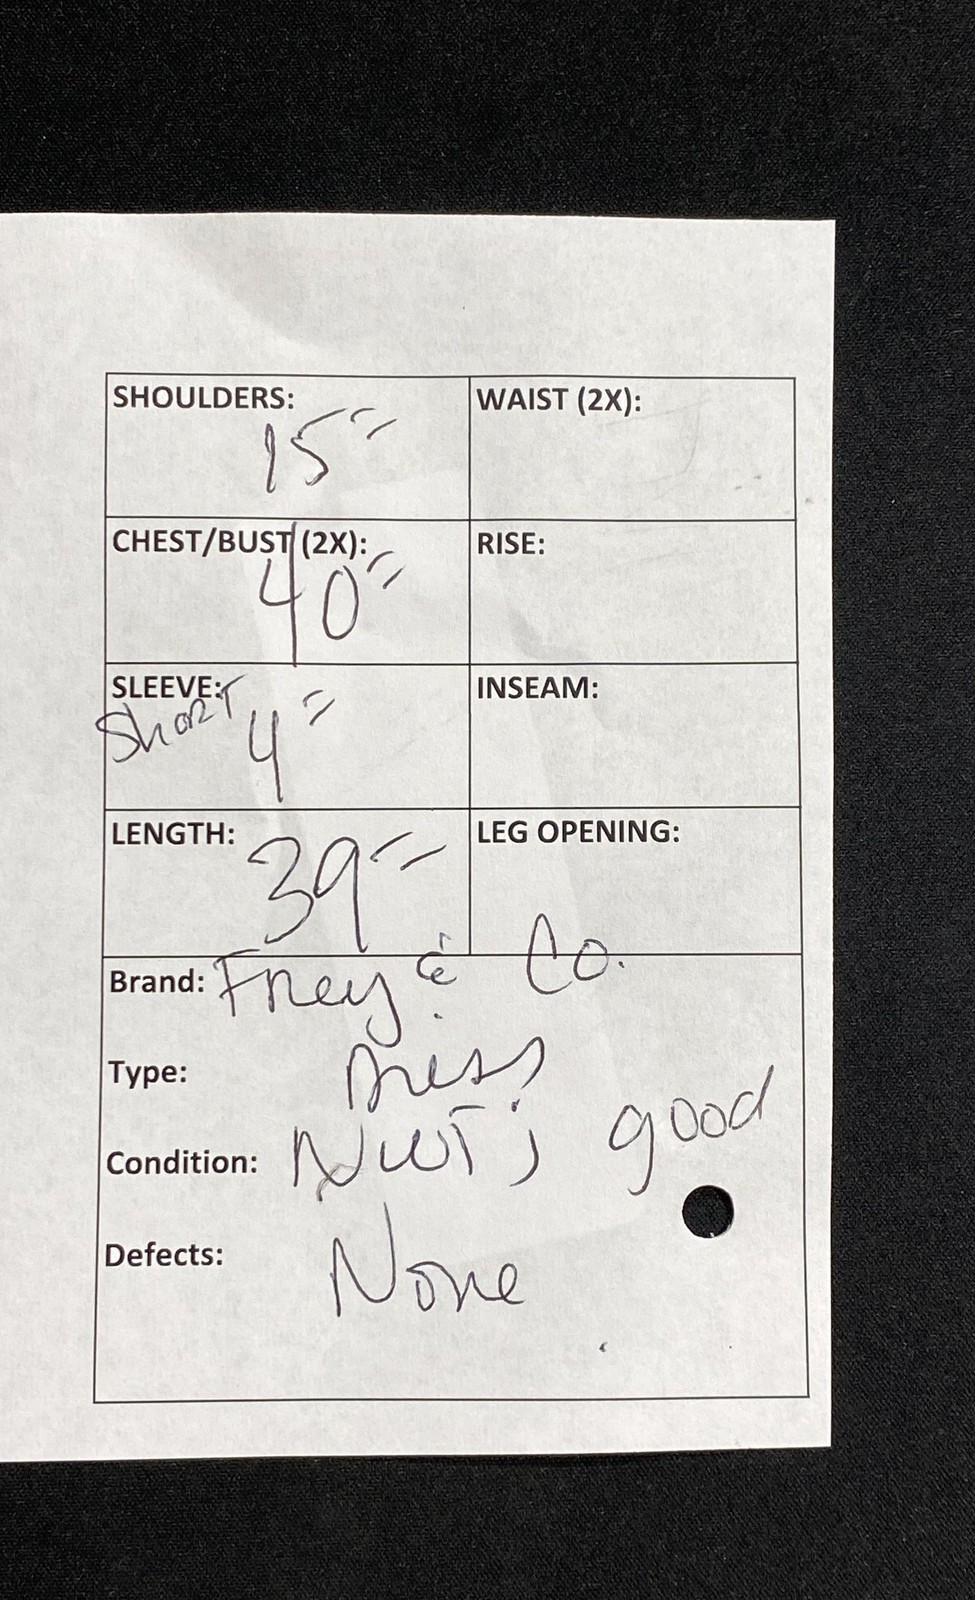 SHOULDERS: 15"
WAIST (2X):
CHEST/BUST (2X): 40"
RISE:
SLEEVE: Short 4"
INSEAM:
LENGTH: 39"
LEG OPENING:
Brand: Frey & Co.
Type: Dress
Condition: NWT; good
Defects: None